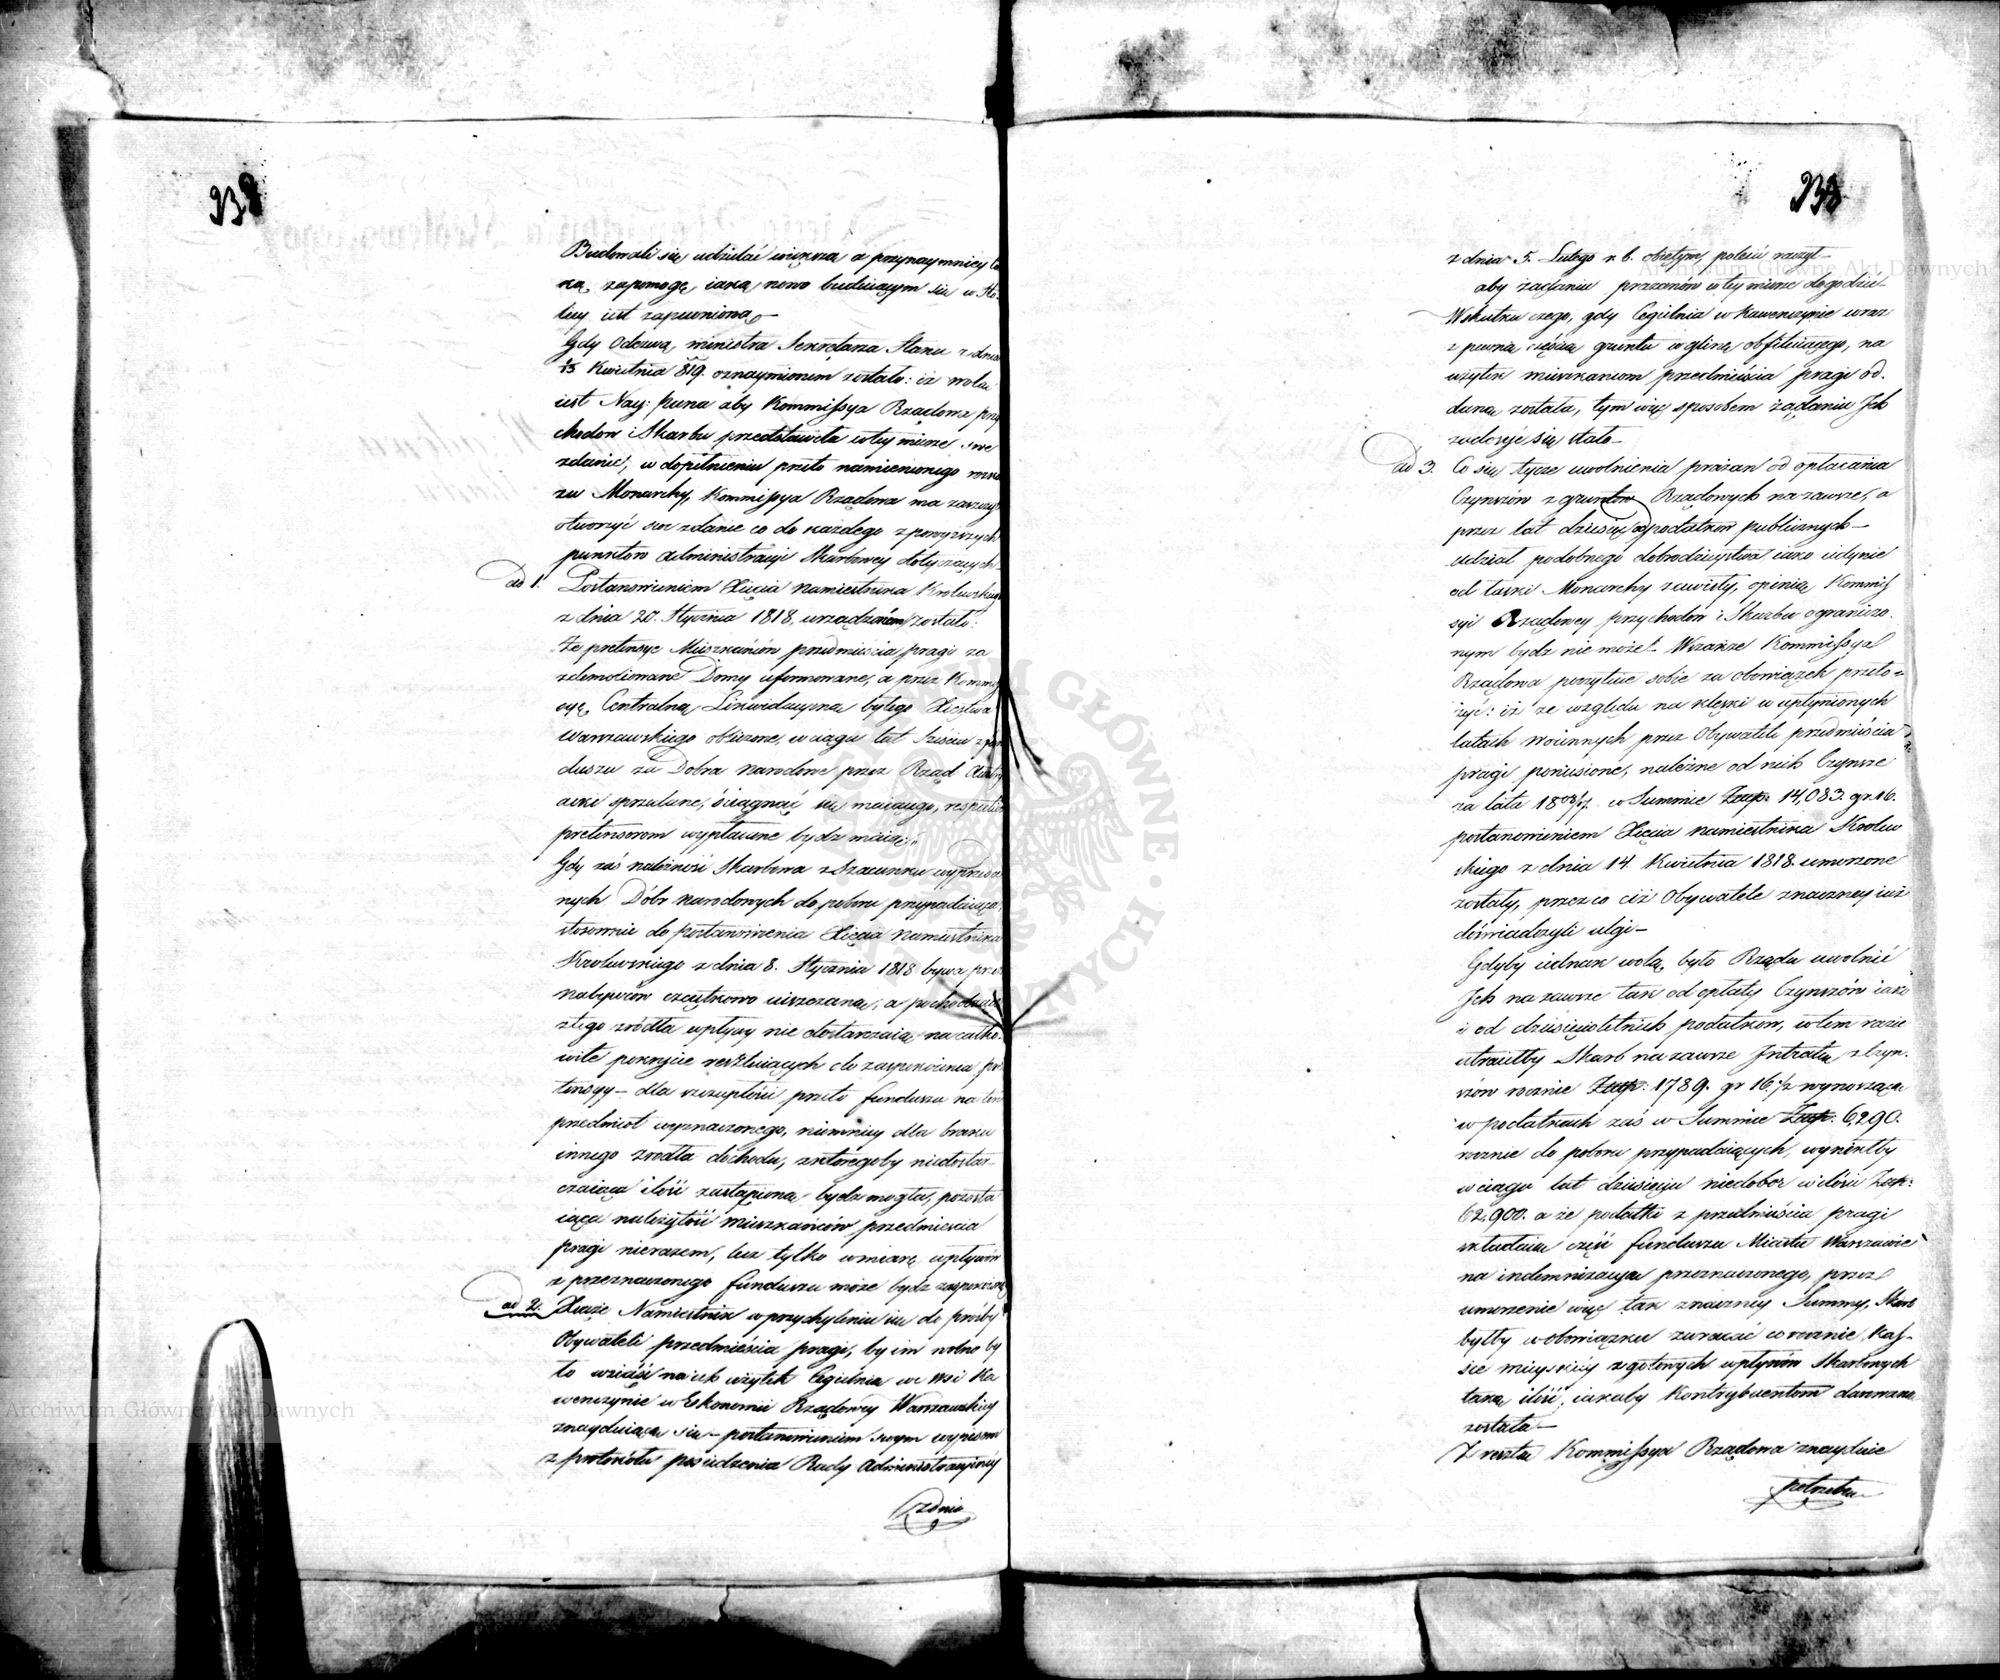 938
Budowali się udzielać większą a przynaymniey ta
ką zapomogę iaką nowo buduiącym się w Sto
licy iest zapewniona
Gdy Odezwą ministra Sekretarza Stanu z dnia
15 Kwietnia 819. oznaymionem zostało: iż wolą
iest Nay: Pana aby Kommissya Rządowa przy
chodów i Skarbu przedstawiła w tey mierze swe
zdanie, w dopełnieniu przeto namienionego rozka
zu Monarchy, Kommissya Rządowa ma zaszczyt
otworzyć swe zdanie co do każdego z powyższych
punktów Administracyi Skarbowey dotyczących
ad 1. Postanowieniem Xięcia Namiestnika Królewskiego
z dnia 20. Stycznia 1818. urządzonem zostało:
że pretensye Mieszkańców przedmieścia pragi za
zdemolowane Domy uformowane, a przez Kommis
syą Centralną Likwidacyiną byłego Xięstwa
Warszawskiego obliczone, w ciągu lat Sześciu z fun
duszu za Dobra narodowe przez Rząd Austry
acki sprzedane, ściągnąć się maiącego, respective
pretensorom wypłacane bydź maią"
Gdy zaś należność Skarbowa z Szacunku wyprzeda
nych Dóbr narodowych do poboru przypadaiąca,
stosownie do postanowienia Xięcia Namiestnika
Królewskiego z dnia 8. Stycznia 1818 bywa przez
Nabywców cząstkowo uiszczaną; a pochodzące
z tego źródła wpływy nie dostarczaią na całko-
wite pokrycie resztuiących do zaspokoienia pre
tensyy – dla szczupłości przeto funduszu na ten
przedmiot wyznaczonego, niemniey dla braku
innego źródła dochodu, z któregoby niedostar-
czaiąca ilość zastąpiona bydź mogła, pozosta
iąca należytość mieszkańców przedmieścia
pragi nierazem, lecz tylko w miarę wpływów
z przeznaczonego funduszu może bydź zaspokoioną
ad 2. Xiąże Namiestnik w przychyleniu się do prośby
Obywateli przedmieścia pragi, by im wolno by
ło wziąść na ich użytek Cegielnią we Wsi Ka
wenczynie w Ekonomii Rządowey Warszawskiey
znayduiącą się – postanowieniem swym wypisem
z protokółu posiedzenia Rady Administracyiney
z dnia
938
z dnia 5. Lutego r. b. obiętym, polecić raczył –
aby żądaniu prażanów w tey mierze dogodzić –
W skutku czego, gdy Cegielnia w Kawenczynie wraz
z pewną częścią gruntu w glinę obfituiącego, na
użytek mieszkańcom przedmieścia pragi od-
daną została, tym więc sposobem żądaniu Ich
zadosyć się stało –
ad 3. Co się tycze uwolnienia prażan od opłacania
Czynszów z gruntów Rządowych na zawsze, a
przez lat dziesięć od podatków publicznych –
udział podobnego dobrodzieystwa iako iedynie
od łaski Monarchy zawisły, opinią Kommis
syi Rządowey przychodów i Skarbu ograniczo-
nym bydź nie może! Wszakże Kommissya
Rządowa poczytuie sobie za obowiązek przeło-
żyć: iż ze względu na klęski w upłynionych
latach woiennych przez Obywateli przedmieścia
pragi poniesione, należne od nich Czynsze
za lata 18 w Summie Złtp: 14,083. gr 16.
postanowieniem Xięcia Namiestnika Królew
skiego z dnia 14 Kwietnia 1818 umorzone
zostały, przez co ciż Obywatele znaczney iuż
doświadczyli ulgi –
Gdyby iednak wolą było Rządu uwolnić
Ich na zawsze tak od opłaty Czynszów iako
i od dziesięcioletnich podatków, w tem razie
utraciłby Skarb na zawsze Intratę z Czyn-
szów rocznie Złtp: 1789. gr 16½ wynoszącą
w podatkach zaś w Summie Złtp: 6,290.
rocznie do poboru przypadaiących, wyniosłby
w ciągu lat dziesięciu niedobór w ilości Złtp:
62,900. a że podatki z przedmieścia pragi
składaią część funduszu Miastu Warszawie
na indemnizacyą przeznaczonego, przez
umorzenie więc tak znaczney Summy, Skarb
byłby w obowiązku zwracać corocznie Kas-
sie mieyskiey z gotowych wpływów Skarbowych
taką ilość, iakaby Kontrybuentom darowaną
została –
Z resztą Kommissya Rządowa znayduie
potrzebę
Archiwum Główne Akt Dawnych
Archiwum Główne Akt Dawnych